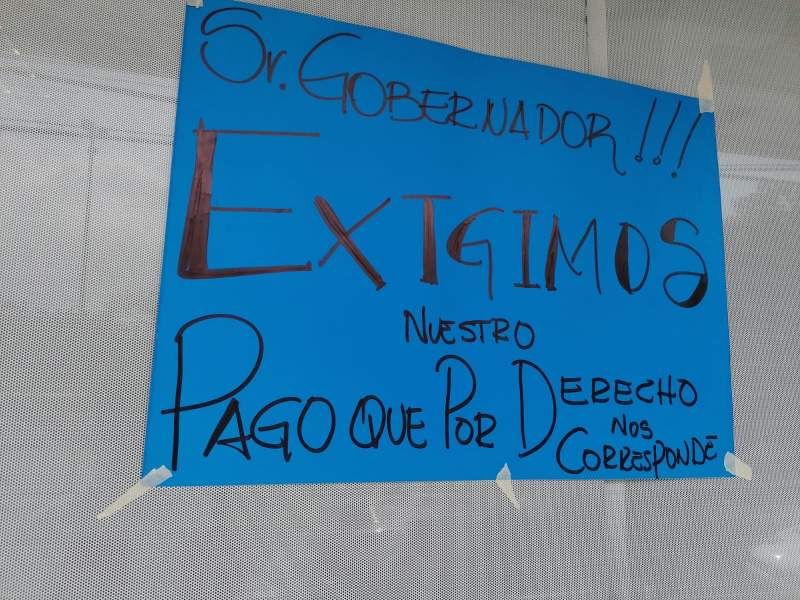 Sr. GOBERNADOR!!!
EXIGIMOS
NUESTRO
PAGO QUE POR DERECHO
NOS
CORRESPONDE